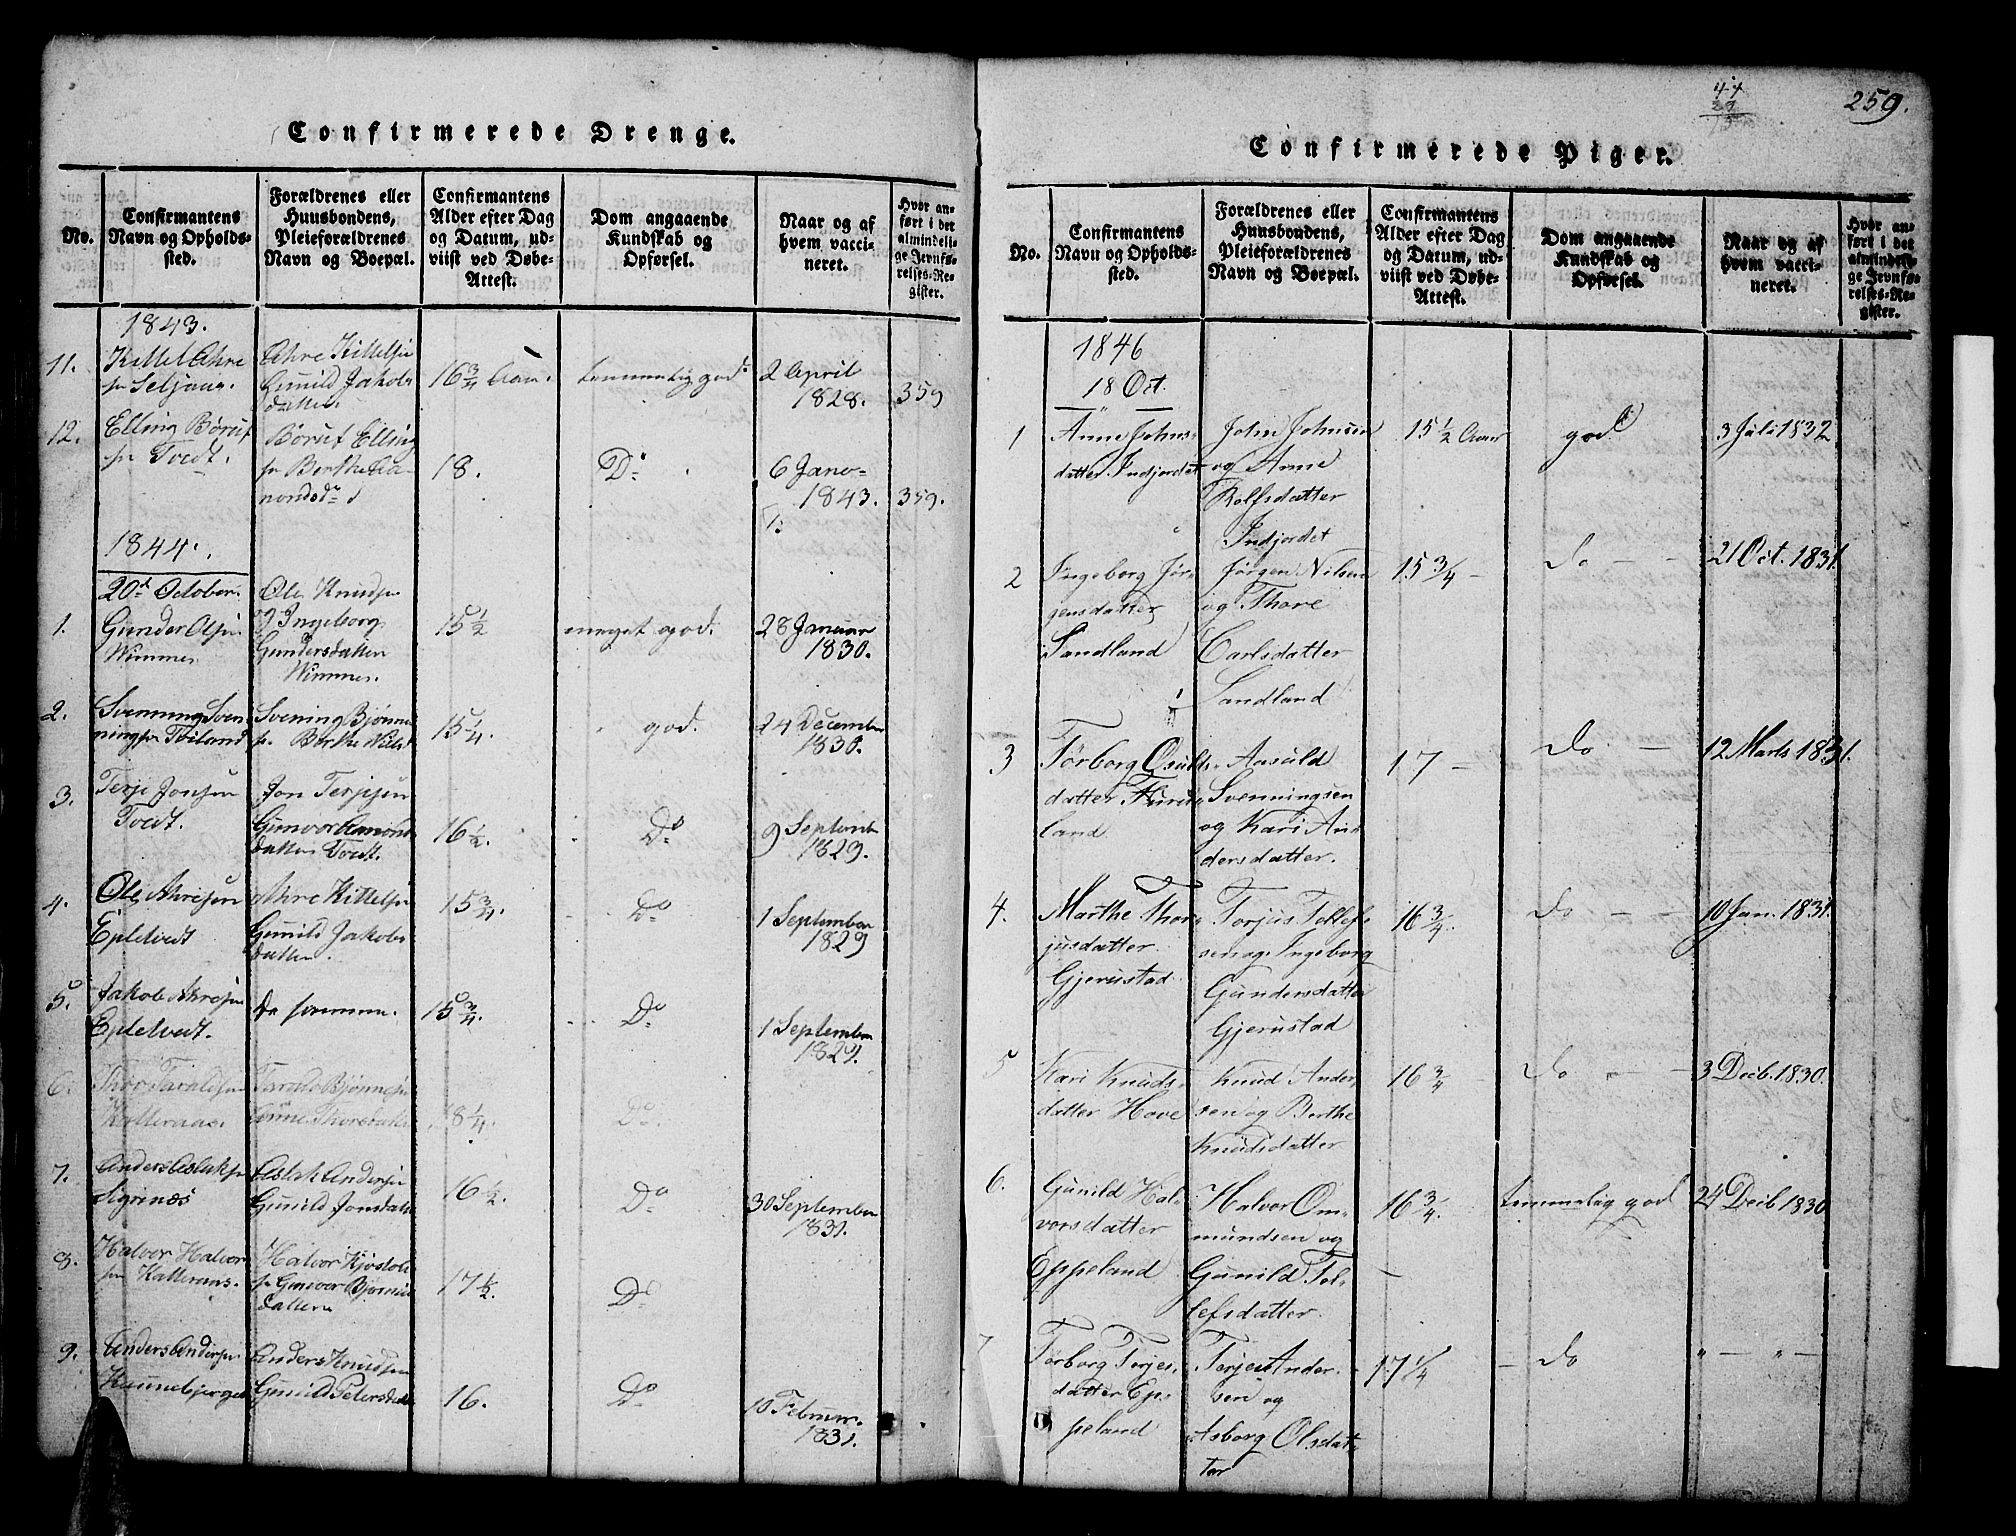 Confirmerede Drenge.
No.
Confirmantens
Navn og Opholds-
sted.
Forældrenes eller
Huusbondens,
Pleieforældrenes
Navn og Boepæl.
Confirmantens
Alder efter Dag
og Datum, ud-
viist ved Døbe-
Attest.
Dom angaaende
Kundskab og
Opførsel.
Naar og af
hvem vacci-
neret.
Hvor an-
ført i det
almindeli-
ge Jevnfø-
relses-Re-
gister.
1843.
11.
Kittel Ahre
sn Seljaas.
Ahre Kittelsen
Gunild Jakobs
datter
16 3/4 Aar.
temmelig god
2 April
1828.
359
12.
Elling Børuf
sn Tvedt.
Børuf Elling
sn Berthe
18.
Do
6 Janu-
1843.
359.
1844.
20d October.
1.
Gunder Olsen
Wimmer
Ole Knudsen
og Ingeborg
Gundersdatter
Wimmer.
15 1/2
meget god.
28 Januar
1830.
2.
Svenning Sven
ningsn Toiland
Svening Bjønne
sn. Berthe Niels
15 1/4.
god.
24 December
1830.
3.
Terje Jonsen
Tvedt.
Jon Terjesen
Gunvor Amonds
datter Tvedt.
16 1/2.
Do
9 Septemb
1829.
4.
Ole Ahresen
Epletvedt
Ahre Kittelsen
Gunild Jakobs
datter.
15 3/4.
Do
1 September
1829
5.
Jakob Ahresen
Epletvedt.
De samme.
15 3/4.
Do
1 September
1829.
6.
Thor Taraldsen
Katteraas.
Tarald Bjønnesen
Anne Thorsdatter
18 1/4.
Do.
7.
Anders Aslaksen
Sigrinæs
Aslak Andersen
Gunild Jonsdatter
16 1/2.
Do
30 September
1831.
8.
Halvor Halvor
sen Katteraas.
Halvor Kjøstol
sn Gunvor Bjørns
datter
17 1/2.
Do
9.
Anders Andersen
Anders Knudsen
Gunild Petersdatter
16.
Do
10 Februar.
1831.
259.
Confirmerede Piger.
No.
Confirmantens
Navn og Opholds-
sted.
Forældrenes eller
Huusbondens,
Pleieforældrenes
Navn og Boepæl.
Confirmantens
Alder efter Dag
og Datum, ud-
viist ved Døbe-
Attest.
Dom angaaende
Kundskab og
Opførsel.
Naar og af
hvem vacci-
neret.
Hvor an-
ført i det
almindeli-
ge Jevnfø-
relses-Re-
gister.
1846
18 Oct.
1
Anne Johns-
datter Indjordet
John Johnsen
og Anne
Rolfsdatter
Indjordet
15 1/2 Aar
god
3 Juli 1832
2
Ingeborg Jør-
gensdatter
Sandland
Jørgen Nilsen
og Thore
Carlsdatter
Sandland
15 3/4 -
do - -
21 Oct. 1831.
3
Torborg Osulds-
datter
land
Aasuld
Svenningsen
og Kari An-
dersdatter.
17 -
do -
12 Marts 1831.
4.
Marthe Thor-
jusdatter
Gjerustad
Torjus Tollef-
sen og Ingeborg
Gundersdatter
Gjerustad
16 3/4.
do - -
10 Jan. 1831.
5
Kari Knuds-
datter Hove
Knud Ander-
sen og Berthe
Knudsdatter
16 3/4 -
do - -
3 Decb. 1830.
6.
Gunild Hal-
vorsdatter
Eppeland
Halvor Om-
mundsen og
Gunild Tol-
lefsdatter.
16 3/4.
temmelig god
24 Decb 1830
7
Torborg Terjes-
datter Ep-
peland
Terjes Ander-
sen og
Asborg Olsdat-
ter
17 1/4
- do
" - " -